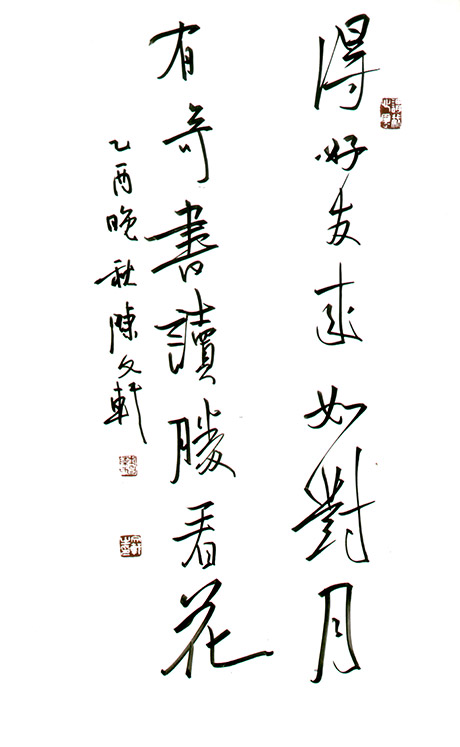 得好友來如對月
有奇書讀勝看花
乙酉晚秋陳文軒